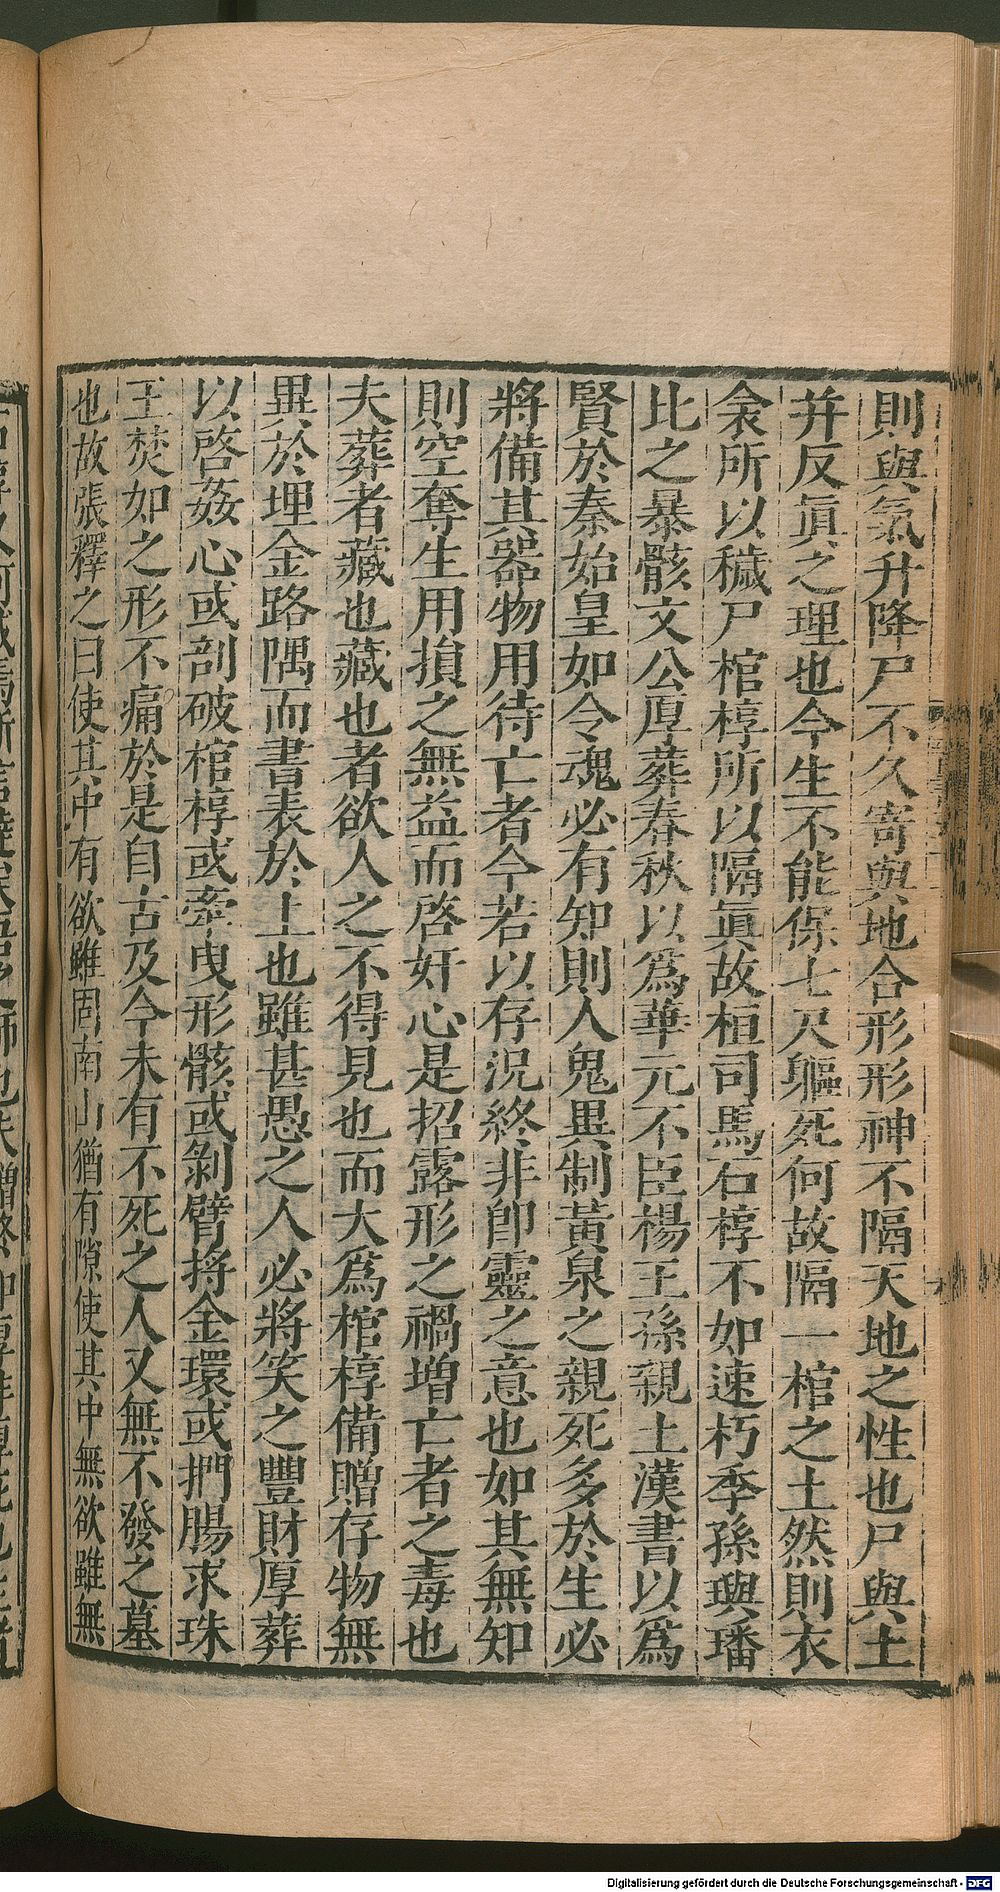 則與氣升降尸不久寄與地合形形神不隔天地之性也尸與土
并反眞之理也今生不能保七尺軀死何故隔一棺之土然則衣
衾所以穢尸棺椁所以隔眞故桓司馬石椁不如速朽季孫璵璠
比之暴骸文公厚葬春秋以爲華元不臣楊王孫親土漢書以爲
賢於秦始皇如令魂必有知則人鬼異制黃泉之親死多於生必
將備其器物用待亡者今若以存況終非卽靈之意也如其無知
則空奪生用損之無益而啓奸心是招露形之禍增亡者之毒也
夫葬者藏也藏也者欲人之不得見也而大爲棺椁備贈存物無
異於埋金路隅而書表於上也雖甚愚之人必將笑之豐財厚葬
以啓姦心或剖破棺椁或牽曳形骸或剝臂捋金環或捫腸求珠
玉焚如之形不痛於是自古及今未有不死之人又無不發之墓
也故張釋之曰使其中有欲雖固南山猶有隙使其中無欲雖無
Digitalisierung gefördert durch die Deutsche Forschungsgemeinschaft - DFG